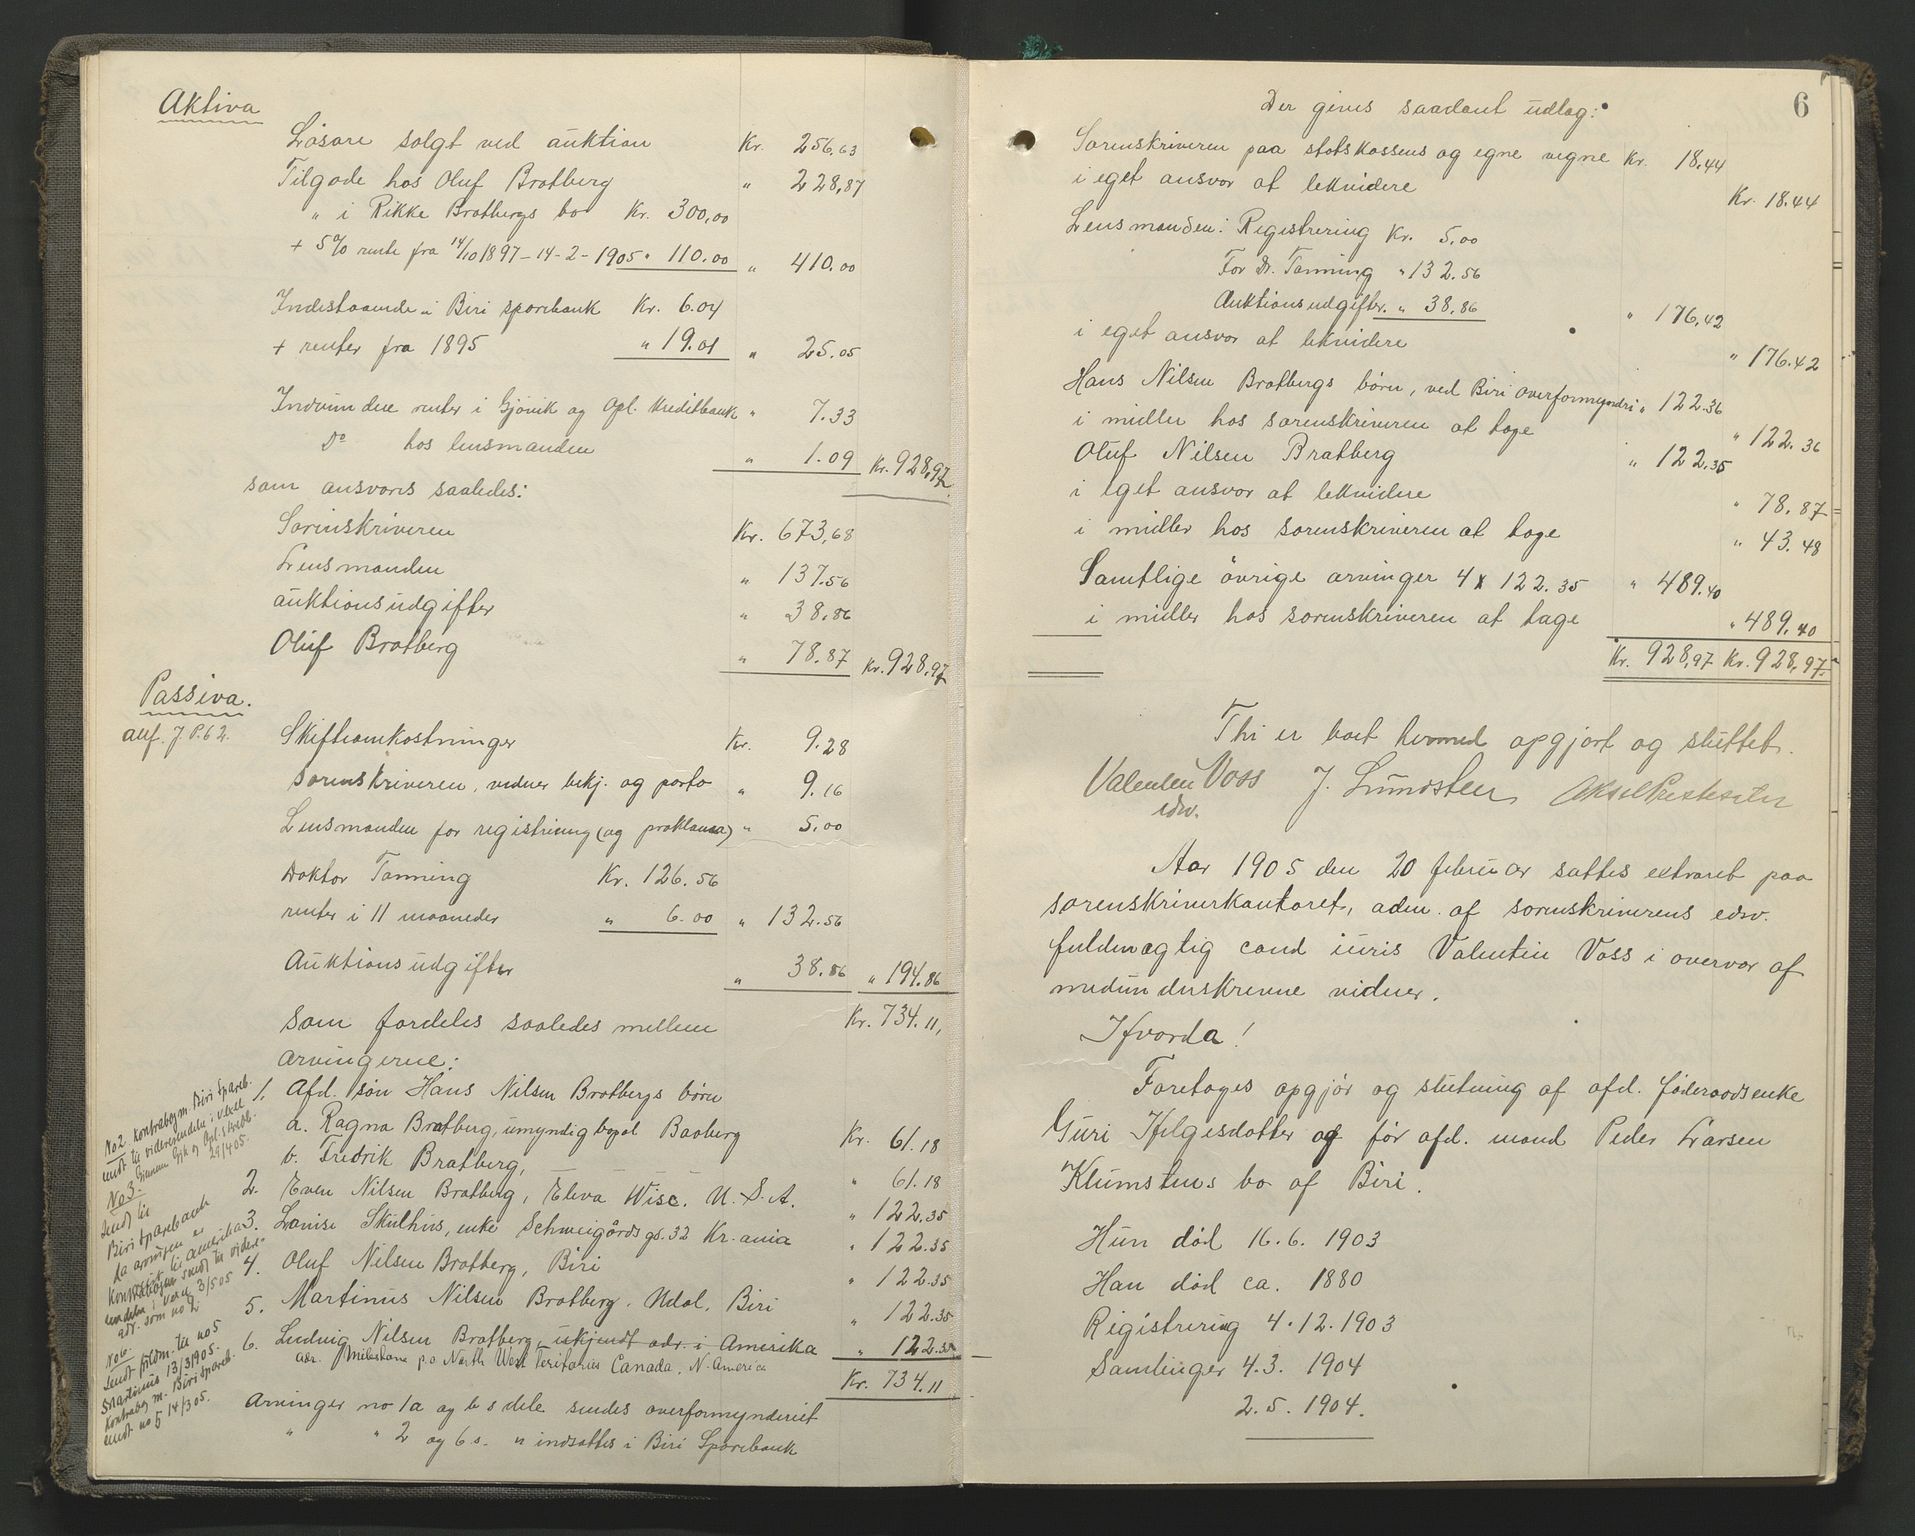 Aktiva
Løsøre solgt ved auktion Kr. 256,63
Tilgode hos Oluf Bratberg " 228,87
" i Rikke Bratbergs bo Kr. 300,00
+ 5% rente fra 14/10 1897 - 14-2-1905 " 110.00 " 410.00
Indestaaende i Biri sparebank Kr. 6.04
+ renter fra 1895 " 19.01 " 25.05
Indvundne renter i Gjøvik og Opl. Kreditbank " 7.33
Do hos lensmanden " 1.09 Kr. 928,97
som ansvares saaledes:
Sorenskriveren Kr. 673,68
Lensmanden " 137.56
Auktionsudgifter " 38.86
Oluf Bratberg " 78.87 Kr. 928.97
Passiva.
anf. J. P. 62.
Skifteomkostninger Kr. 9.28
Sorenskriveren, vidner bekj. og porto " 9.16
Lensmanden for registrering (og proklama) " 5.00
Doktor Tanning Kr. 126.56
renter i 11 maaneder " 6.00 " 132.56
Auktionsudgifter " 38.86 " 194.86
Som fordeles saaledes mellem Kr. 734.11,
arvingerne:
1. Afd. søn Hans Nilsen Bratbergs børn
a. Ragna Bratberg, umyndig bopæl Baaberg Kr. 61.18
b. Fredrik Bratberg, " 61.18
2. Even Nilsen Bratberg, Eleva Wisc. U.S.A. " 122.35
3. Lovise Skulhus, enke Schweigårds gd. 32 Kr.ania " 122.35
4. Oluf Nilsen Bratberg, Biri " 122.35
5. Martinus Nilsen Bratberg, Udal, Biri " 122.35
6. Ludvig Nilsen Bratberg, ukjendt adr. i Amerika " 122.35
adr. Milestone p.o North West Teritories Canada, N. America
Kr. 734.11
Arvinger no 1a og b s dele sendes overformynderiet
" " 2 og 6 s. " indsættes i Biri Sparebank
No 2 kontrabog m. Biri Spareb.
sendt til videresendelse i vexel
gjennem Gjk og Opl. Kredb.
29/4 05.
No 3.
Sendt til
Biri Sparebank
da arvingen er
reist til Amerika
Kontrabogen sendt til videre-
sendelse i vexel 3/5 05
adr. som no 2
No 6.
Sendt fuldm. til no 5
Martinus 13/3 1905.
Kontrabog m. Biri Spareb.
sendt no 5 14/3 05.
6
Der gives saadant udlæg:
Sorenskriveren paa statskassens og egne vegne Kr. 18.44
i eget ansvar at lekvidere Kr. 18.44
Lensmanden: Registrering Kr. 5,00
For Dr. Tanning " 132.56
Auktionsudgifter " 38,86 " 176,42
i eget ansvar at lekvidere " 176.42
Hans Nilsen Bratbergs børn, ved Biri overformynderi " 122.36
i midler hos sorenskriveren at tage " 122.36
Oluf Nilsen Bratberg " 122.35
i eget ansvar at lekvidere " 78.87
i midler hos sorenskriveren at tage " 43.48
Samtlige øvrige arvinger 4 x 122.35 " 489.40
i midler hos sorenskriveren at tage " 489.40
Kr. 928,97 Kr. 928,97
Thi er boet hermed opgjort og sluttet.
Valentin Voss J. Lundsteen Aksel Prestesæter
edsv.
Aar 1905 den 20 februar sattes extraret paa
sorenskriverkontoret, adm. af sorenskriverens edsv.
fuldmægtig cand iuris Valentin Voss i overvær af
medunderskrevne vidner.
Hvorda!
Foretoges opgjør og slutning af afd. føderaadsenke
Guri Helgesdatter og før afd. mand Peder Larsen
Klumstens bo af Biri.
Hun død 16.6. 1903
Han død ca. 1880
Registrering 4.12.1903
Samlinger 4.3. 1904
2.5. 1904.